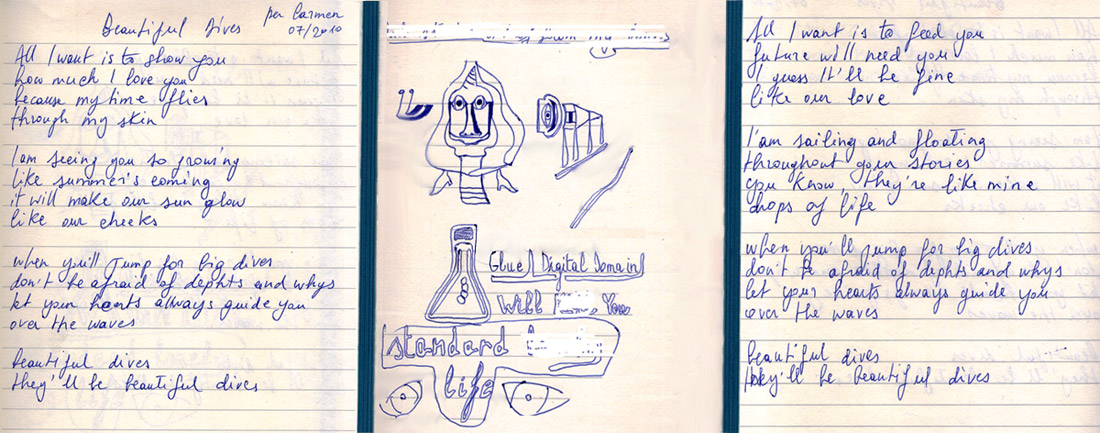 Beautiful Dives
per Carmen
07/2010
All I want is to show you
how much I love you
because my time flies
through my skin
I am seeing you so growing
like summer's coming
it will make our sun glow
like our cheeks
when you'll jump for big dives
don't be afraid of dephts and whys
let your hearts always guide you
over the waves
beautiful dives
they'll be beautiful dives
Digital Domain
Will You
standard
life
All I want is to feed you
future will need you
I guess it'll be fine
like our love
I'am sailing and floating
throughout your stories
you know, they're like mine
drops of life
when you'll jump for big dives
don't be afraid of dephts and whys
let your hearts always guide you
over the waves
beautiful dives
they'll be beautiful dives